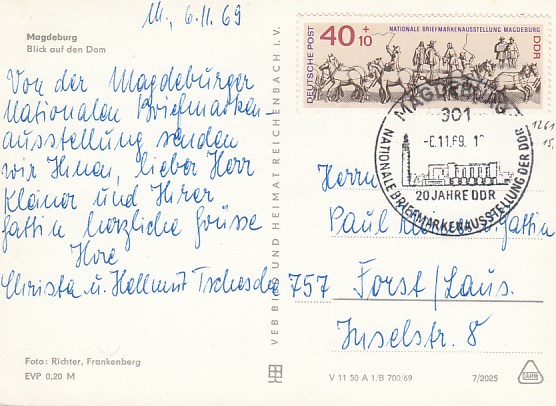 M., 6.11.69
Magdeburg
Blick auf den Dom
Von der Magdeburger
Nationalen Briefmarken-
ausstellung senden
wir Ihnen, lieber Herr
Kleiner und Ihrer
Gattin herzliche Grüsse
Ihre
Christa u. Hellmut
Foto: Richter, Frankenberg
EVP 0,20 M
VEB BILD UND HEIMAT REICHENBACH I. V.
DEUTSCHE POST
40+10
NATIONALE BRIEFMARKENAUSSTELLUNG MAGDEBURG
DDR
MAGDEBURG
301
-6.11.69.
20 JAHRE DDR
NATIONALE BRIEFMARKENAUSSTELLUNG DER DDR
1261
15,
Herrn
Paul Gattin
757 Forst/Laus.
Inselstr. 8
V 11 50 A 1/B 700/69
7/2025